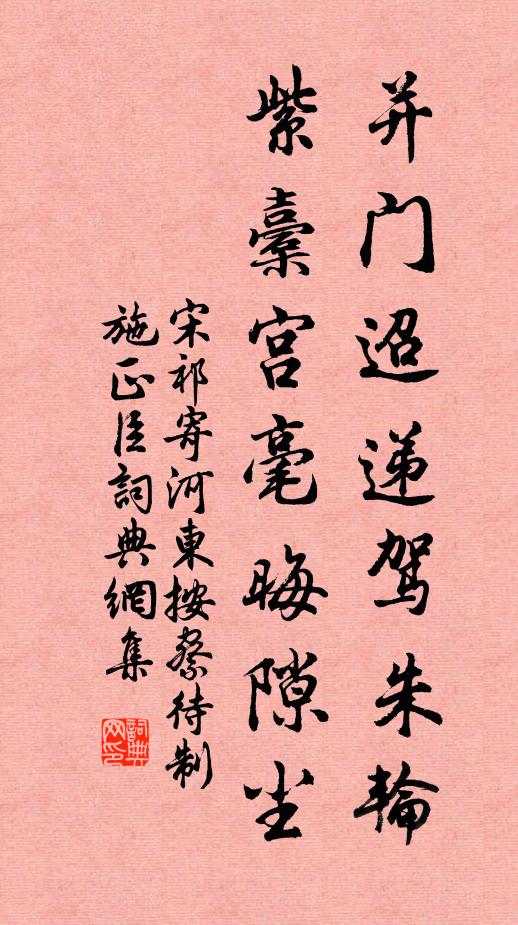 并门迢递驾朱輪
紫橐宫毫晦隙尘
宋祁寄河東按察待制
施正臣詞典網集
詞典网印